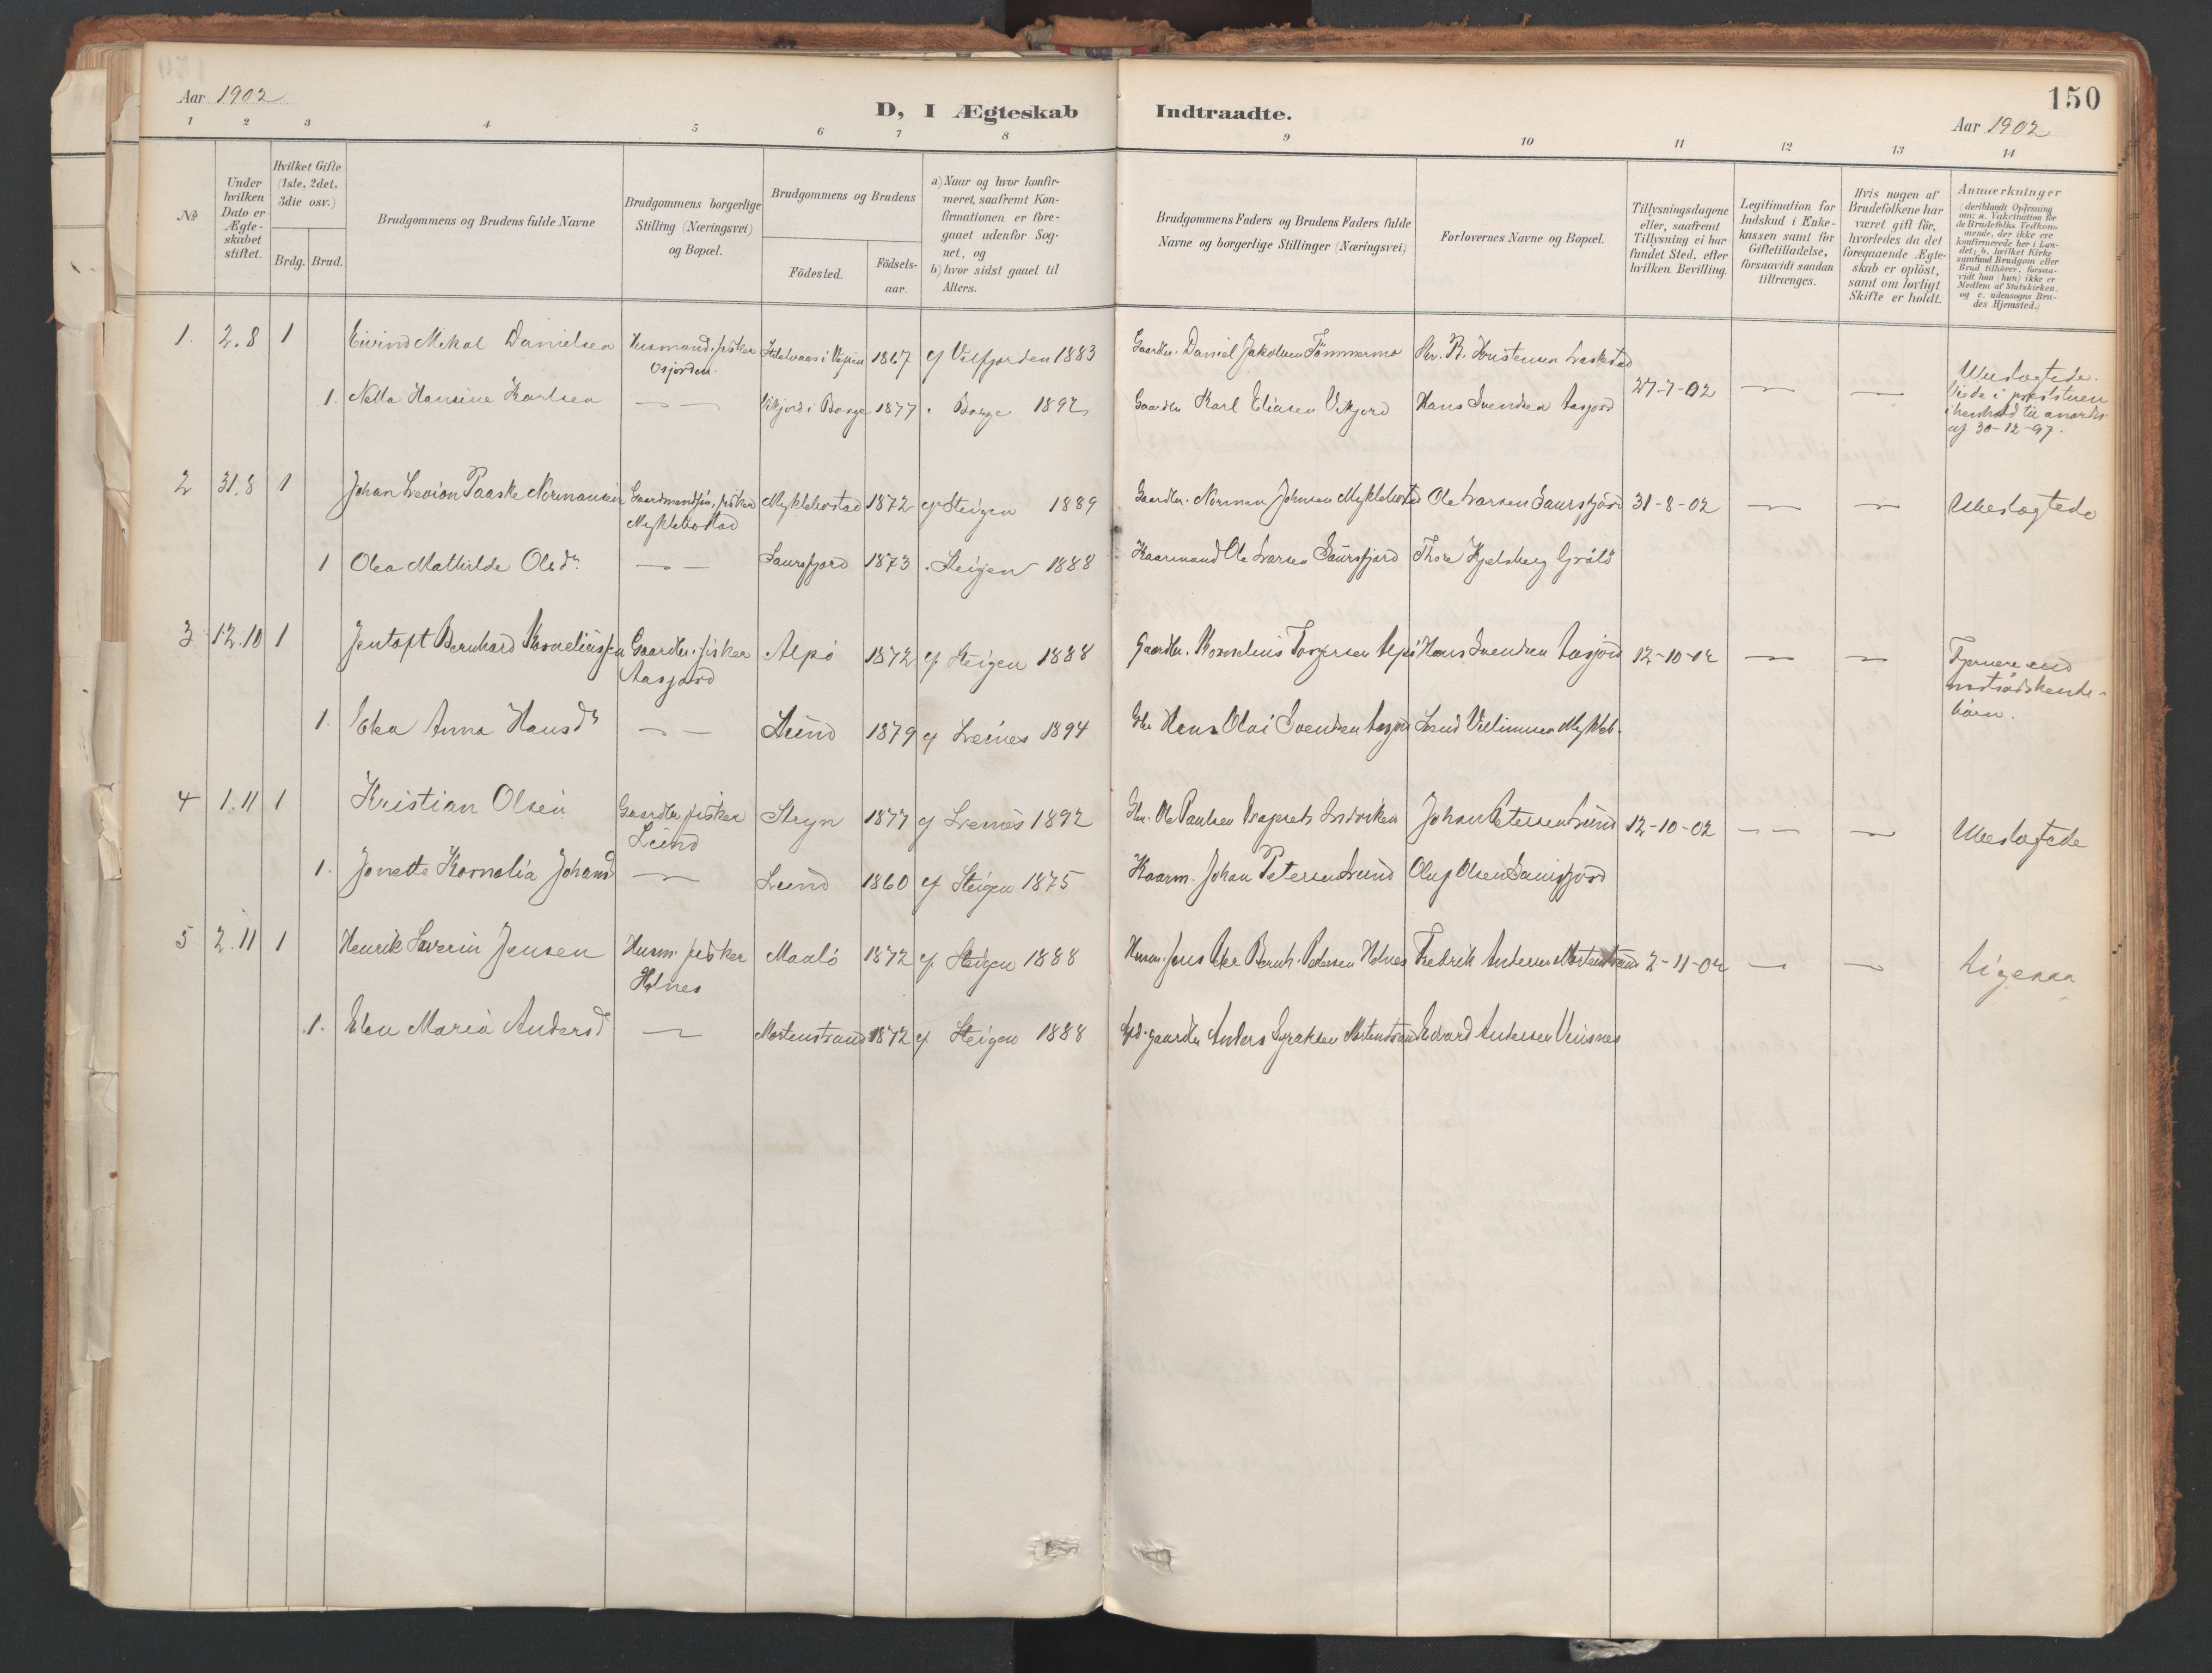 150
Aar 1902
D, I Ægteskab Indtraadte.
Aar 1902
1 2 3 4 5 6 7 8 9 10 11 12 13 14
№
Under hvilken Dato er Ægteskabet stiftet.
Hvilket Gifte (1ste, 2det, 3die osv.)
Brdg. Brud.
Brudgommens og Brudens fulde Navne
Brudgommens borgerlige Stilling (Næringsvei) og Bopæl.
Brudgommens og Brudens
Födested. Födsels-aar.
a) Naar og hvor konfir-
meret, saafremt Kon-
firmationen er fore-
gaaet udenfor Sog-
net, og
b) hvor sidst gaaet til
Alters.
Brudgommens Faders og Brudens Faders fulde
Navne og borgerlige Stillinger (Næringsvei)
Forlovernes Navne og Bopæl.
Tillysningsdagene
eller, saafremt
Tillysning ei har
fundet Sted, efter
hvilken Bevilling.
Legitimation for
Indskud i Enke-
kassen samt for
Giftetilladelse,
forsaavidt saadan
tiltrænges.
Hvis nogen af
Brudefolkene har
været gift för,
hvorledes da det
foregaaende Ægte-
skab er oplöst,
samt om lovligt
Skifte er holdt.
Anmærkninger
(deriblandt Oplysning
om: a. Vakcination for
de Brudefolks Vedkom-
mende, der ikke ere
konfirmerede her i Lan-
det; b. hvilket Kirke-
samfund Brudgom eller
Brud tilhörer, forsaa-
vidt han (hun) ikke er
Medlem af Statskirken,
og c. udensogns Bru-
des Hjemsted.)
1. 2.8 1 Eivind Mikal Danielsen Husmand, fisker 1867 Velfjorden 1883 Gaardbr. Daniel Jakobsen Tömmermo
1. Netta Hansine Karlsen — — Vikjord i Borge 1877 Borge 1892 Gaardbr Karl Eliasen Vikjord Hans Svendsen Aasjord 27-7-02 — — Ubeslægtede.
Viede i præstestuen
i henhold til anordn.
af 30-12-97.
2 31.8 1 Johan Levion Paaske Normansen fisker Myklebostad 1872 Steigen 1889 Gaardbr. Norman Johnsen Myklebostad Ole Larsen Saursfjord 31-8-02 — — Ubeslægtede
Myklebostad
1 Olea Mathilde Olsdr — — Saursfjord 1873 Steigen 1888 Kaarmand Ole Larsen Saursfjord Thore Kjelsberg Grötö
3 12.10 1 Jentoft Bernhard Korneliussen Gaardbr. fisker Alpö 1872 Steigen 1888 Gaardbr. Kornelius Torgersen Alpö Hans Svendsen Aasjord 12-10-02 — — Fjernere end
Aasjord
nætsödskende-
börn.
1. Elea Anna Hansdr — — Lund 1879 Leines 1894 Gbr Hans Olai Svendsen Aasjord
4 1.11 1 Kristian Olsen Gaardbr fisker Stryn 1877 Leines 1892 Gbr. Ole Paulsen Johan Petersen Lund 12-10-02 — — — Ubeslægtede
Lund
1. Jonette Kornelia Johansd — Lund 1860 Steigen 1875 Kaarm. Johan Petersen Lund Oluf Olsen Saursfjord
5 2.11 1 Henrik Severin Jensen Husm. fisker Maalö 1872 Steigen 1888 Husm. Jens Bernh. Pedersen Holnes Fredrik Andersen Mortenstrand 2-11-02 — — Ligesaa
Holnes
1. Elen Maria Andersd — Mortenstrand 1872 Steigen 1888 gaardbr Anders Mortenstrand Edvard Andersen